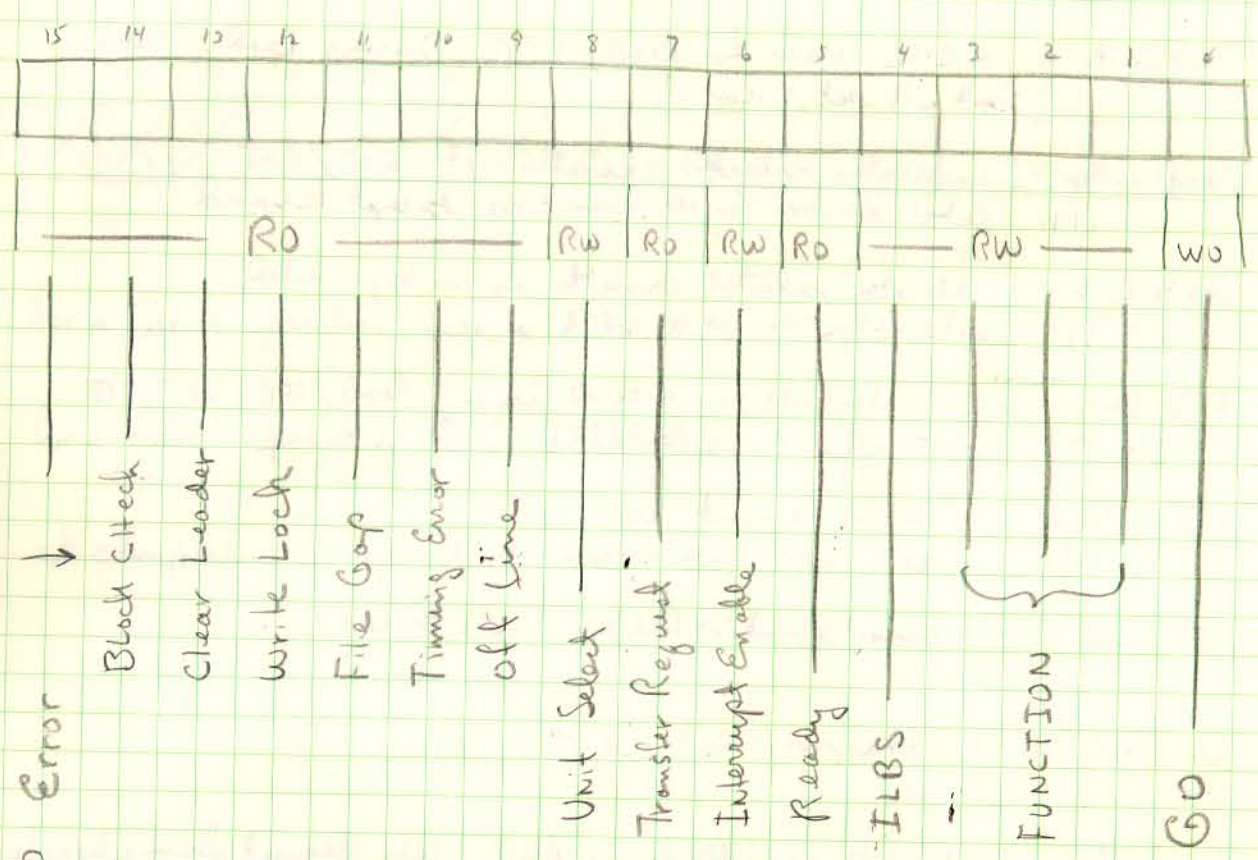 15 14 13 12 11 10 9 8 7 6 5 4 3 2 1 0
RO RW RO RW RO RW WO
Error
Block CHeck
Clear Leader
Write Lock
File Gap
Timing Error
Off Line
Unit Select
Transfer Request
Interrupt Enable
Ready
ILBS
FUNCTION
GO